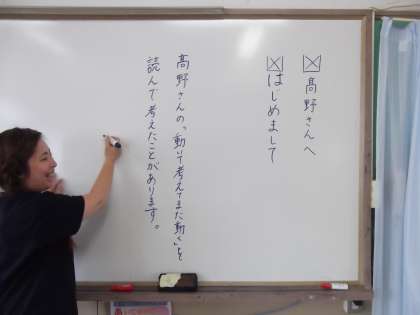 ☒髙野さんへ
☒はじめまして
髙野さんの「動いて考えてまた動く」を
読んで考えたことがあります。